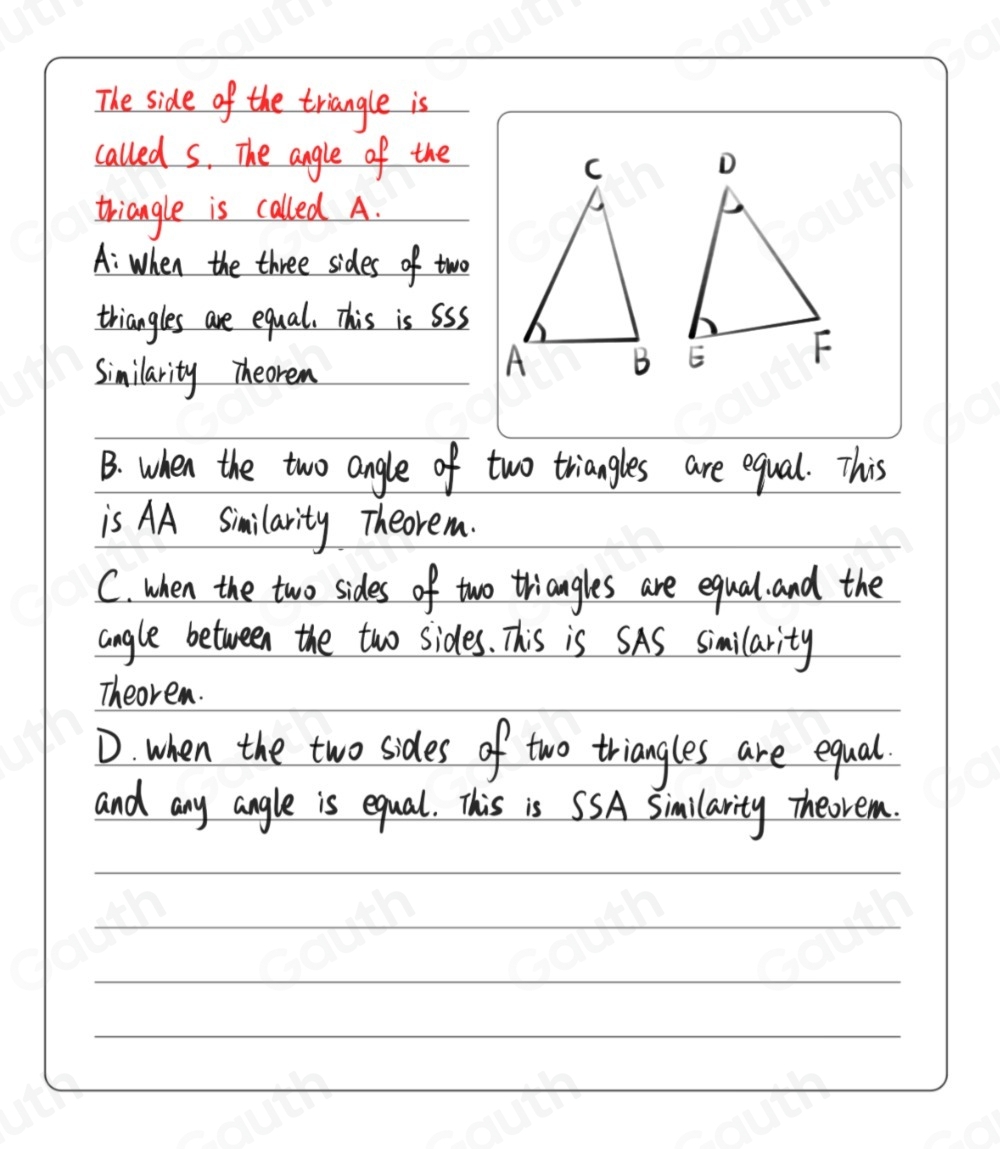 The side of the triangle is
called S. The angle of the
triangle is called A.
A: When the three sides of two
triangles are equal. This is SSS
Similarity Theorem
C
D
A
B
E
F
B. when the two angle of two triangles are equal. This
is AA Similarity Theorem.
C. when the two sides of two triangles are equal. and the
angle between the two sides. This is SAS similarity
Theorem.
D. when the two sides of two triangles are equal.
and any angle is equal. This is SSA Similarity Theorem.
Gauth